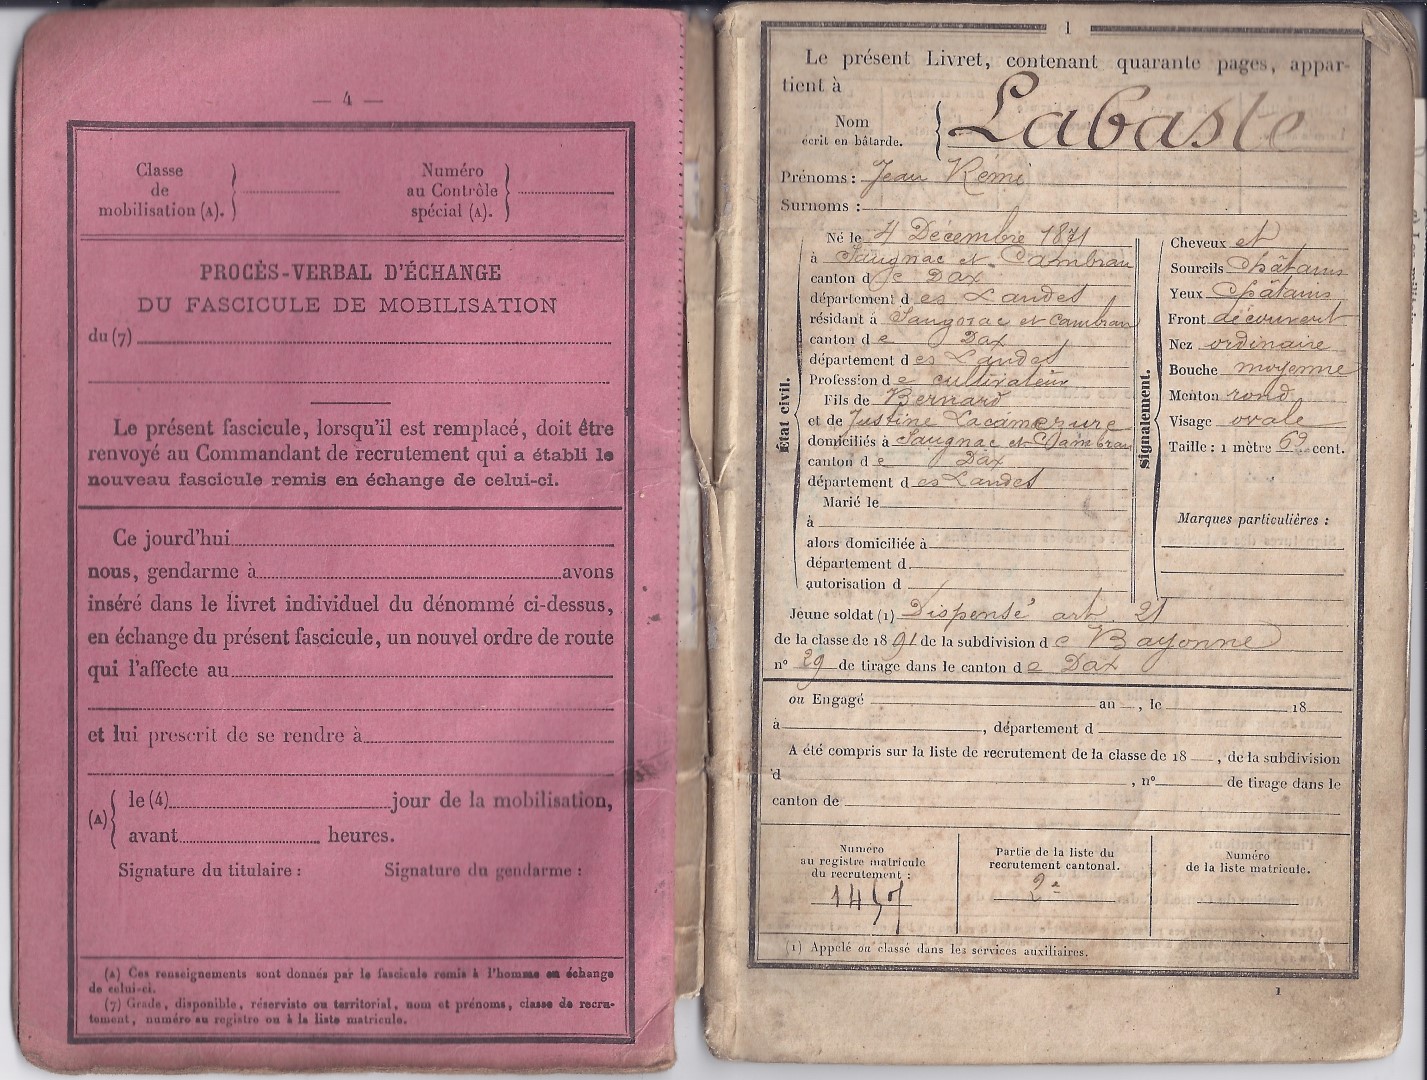 — 4 —
Classe
de
mobilisation (A).
Numéro
au Contrôle
spécial (A).
PROCÈS-VERBAL D'ÉCHANGE
DU FASCICULE DE MOBILISATION
du (7)
Le présent fascicule, lorsqu'il est remplacé, doit être
renvoyé au Commandant de recrutement qui a établi le
nouveau fascicule remis en échange de celui-ci.
Ce jourd'hui
nous, gendarme à avons
inséré dans le livret individuel du dénommé ci-dessus,
en échange du présent fascicule, un nouvel ordre de route
qui l'affecte au
et lui prescrit de se rendre à
(A) le (4) jour de la mobilisation,
avant heures.
Signature du titulaire : Signature du gendarme :
(A) Ces renseignements sont donnés par le fascicule remis à l'homme en échange
de celui-ci.
(7) Grade, disponible, réserviste ou territorial, nom et prénoms, classe de recru-
tement, numéro au registre ou à la liste matricule.
1
Le présent Livret, contenant quarante pages, appar-
tient à
Nom
écrit en bâtarde.
Labaste
Prénoms : Jean Rémi
Surnoms :
État civil.
Né le 4 Décembre 1871
à Saugnac et Cambran
canton de Dax
département des Landes
résidant à Saugnac et Cambran
canton de Dax
département des Landes
Profession de cultivateur
Fils de Bernard
et de Justine
domiciliés à Saugnac et Cambran
canton de Dax
département des Landes
Marié le
à
alors domiciliée à
département d
autorisation d
Signalement.
Cheveux et
Sourcils Châtains
Yeux Châtains
Front découvert
Nez ordinaire
Bouche moyenne
Menton rond
Visage ovale
Taille : 1 mètre 69 cent.
Marques particulières :
Jeune soldat (1) Dispensé art. 21
de la classe de 1891 de la subdivision de Bayonne
n° 29 de tirage dans le canton de Dax
ou Engagé an , le 18
à , département d
A été compris sur la liste de recrutement de la classe de 18 , de la subdivision
d , n° de tirage dans le
canton de
Numéro
au registre matricule
du recrutement :
1457
Partie de la liste du
recrutement cantonal.
2e
Numéro
de la liste matricule.
(1) Appelé ou classé dans les services auxiliaires.
1